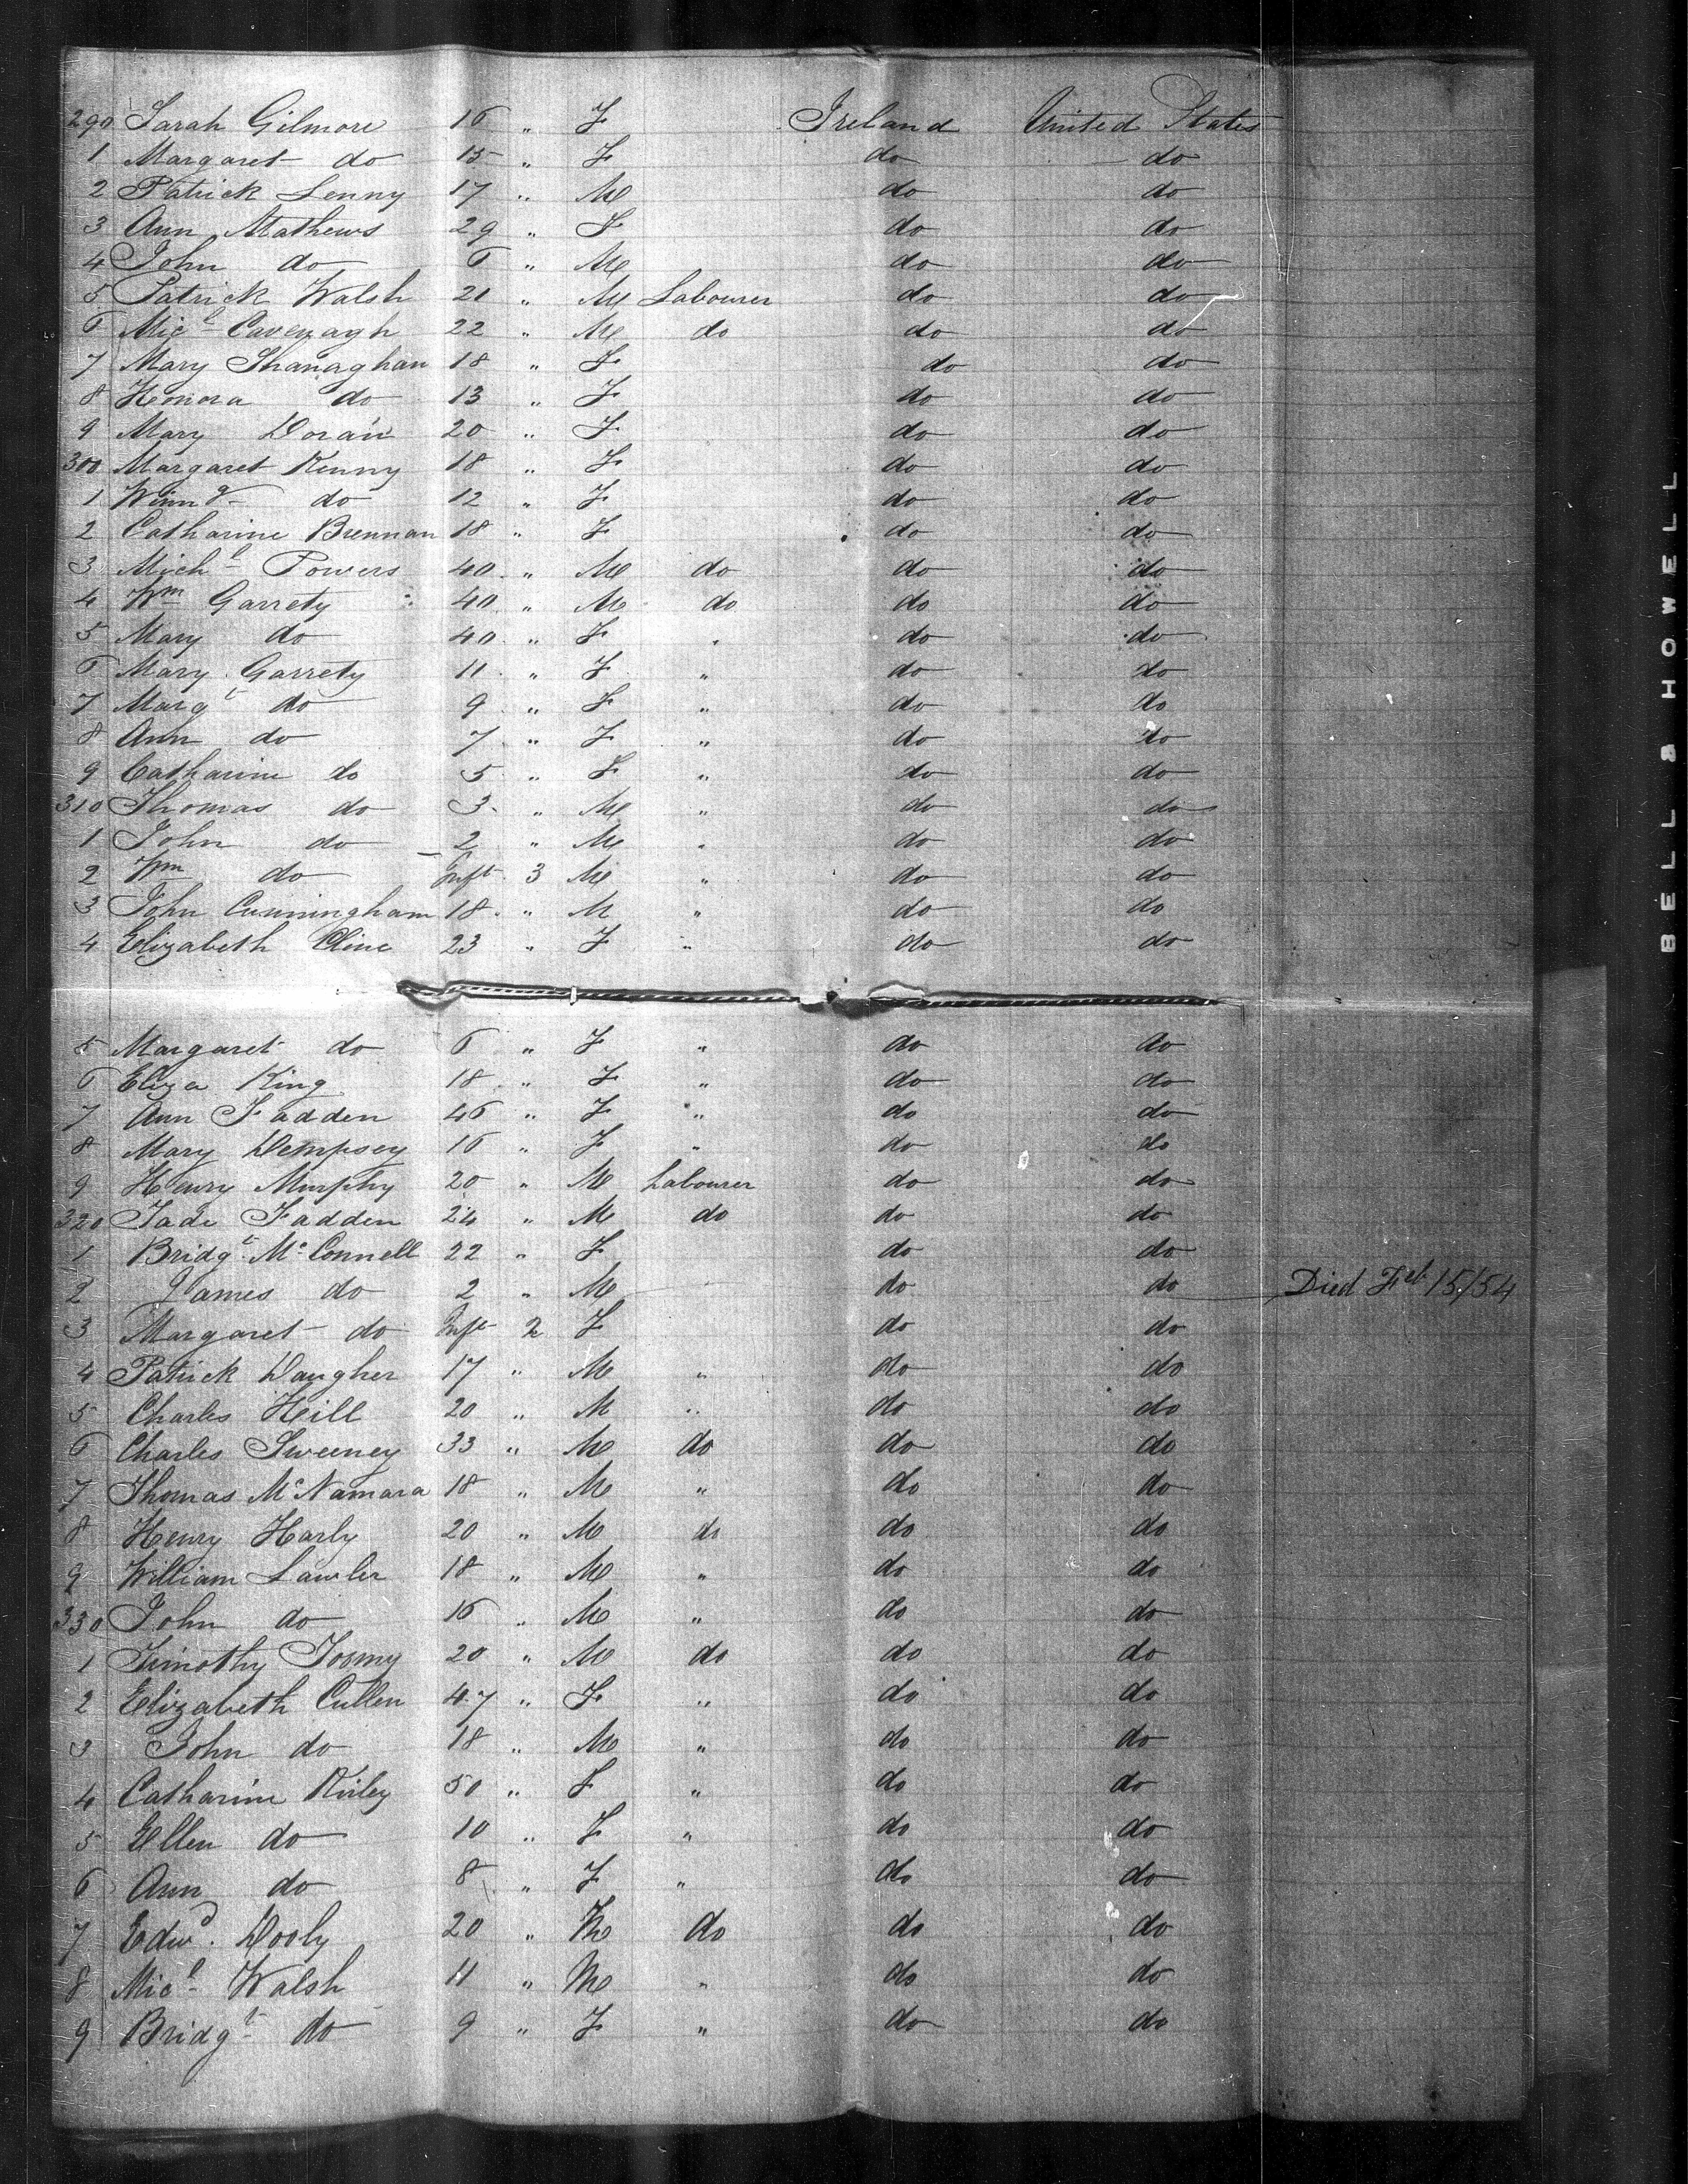 290 Sarah Gilmore 16 " F Ireland United States
1 Margaret do 15 " F do do
2 Patrick Lenny 17 " M do do
3 Ann Mathews 29 " F do do
4 John do 6 " M do do
5 Patrick Walsh 21 " M Labourer do do
6 Micl Cavenagh 22 " M do do do
7 Mary Shanaghan 18 " F do do
8 Honora do 13 " F do do
9 Mary Doran 20 " F do do
300 Margaret Kenny 18 " F do do
1 Winnd do 12 " F do do
2 Catharine Brennan 18 " F do do
3 Michl Powers 40 " M do do do
4 Wm Garrety 40 " M do do do
5 Mary do 40 " F " do do
6 Mary Garrety 11 " F " do do
7 Margt do 9 " F " do do
8 Ann do 7 " F " do do
9 Catharine do 5 " F " do do
310 Thomas do 3 " M " do do
1 John do 2 " M " do do
2 Wm do Inft 3 M " do do
3 John Cunningham 18 " M " do do
4 Elizabeth Cline 23 " F " do do
5 Margaret do 6 " F " do do
6 Eliza King 18 " F " do do
7 Ann Fadden 46 " F " do do
8 Mary Dempsey 16 " F " do do
9 Henry Murphy 20 " M Labourer do do
320 Tade Fadden 24 " M do do do
1 Bridgt McConnell 22 " F do do
2 James do 2 " M do do Died Feb 15/54
3 Margaret do Inft 2 F do do
4 Patrick Daugher 17 " M " do do
5 Charles Heill 20 " M " do do
6 Charles Sweeney 33 " M do do do
7 Thomas McNamara 18 " M " do do
8 Henry Harly 20 " M do do do
9 William Lawler 18 " M " do do
330 John do 16 " M " do do
1 Timothy Toomy 20 " M do do do
2 Elizabeth Cullen 47 " F " do do
3 John do 18 " M " do do
4 Catharine Riley 50 " F " do do
5 Ellen do 10 " F " do do
6 Ann do 8 " F " do do
7 Edwd. Dooly 20 " M do do do
8 Micl Walsh 11 " M " do do
9 Bridgt do 9 " F " do do
BELL & HOWELL